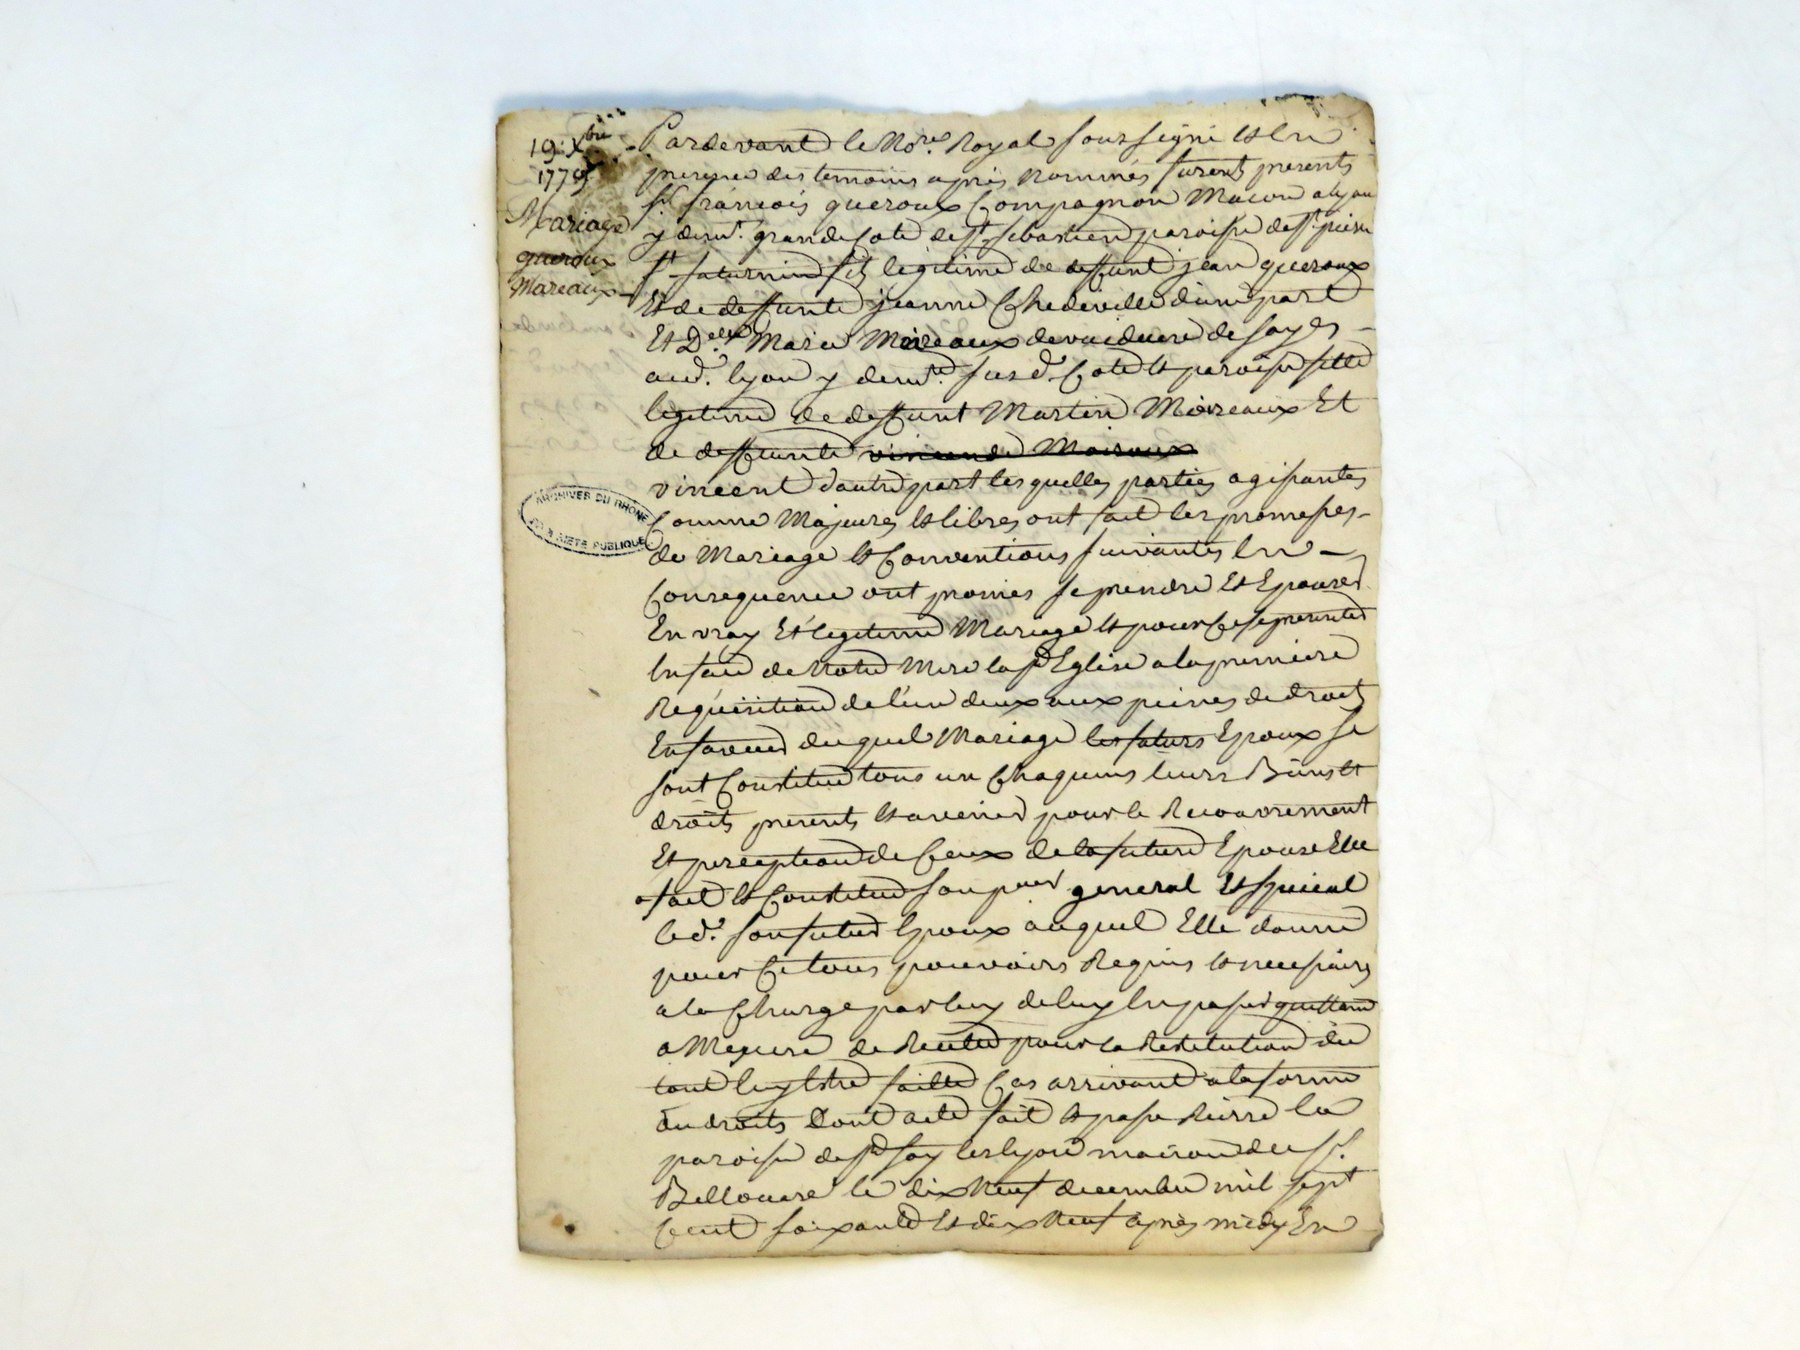 19 Xbre
1779
Mariage
queroux
Mareaux
ARCHIVES DU RHONE
PIETE PUBLIQUE
Pardevant le No.re Royal soussigné et En
presence des temoins après nommés furent presents
Sr. françois queroux Compagnon Macon a lyon
y demt. grande Cote de St. sebastien paroisse de St. pierre
St. saturnin fils legitime de deffunt jean queroux
Et de deffunte jeanne Chedeville d'une part
Et Delle Marie Moireaux devuideuse de soyes
aud. lyon y demte. susd. Cote et paroisse fille
legitime de deffunt Martin Moireaux Et
de deffunte
vincent d'autre part lesquelles parties agissantes
Comme Majeures et libres ont fait les promesses
de Mariage et Conventions suivantes En
Consequence ont promis se prendre Et Epouser
En vray Et legitime Mariage et pour Ce se presenter
En face de Notre Mere la Ste Eglise a la premiere
Requisition de l'un deux aux peines de droit
En faveur duquel Mariage les futurs Epoux se
sont Constitué tous un Chaquuns leurs Biens et
droits presents et avenir pour le Recouvrement
Et perception de Ceux de la future Epouse Elle
a fait et Constitué son pour general Et special
led. son futur Epoux auquel Elle donne
pour Ce tous pouvoirs Requis et necessaires
a la Charge par luy de luy En passer quittance
a Mesure de Recette pour la Restitution du
tout luy Etre faitte Cas arrivant a la forme
du droits Dont acte fait et passé Riere la
paroisse de Ste foy les lyon maison du Sr.
Bellouare le dix Neuf decembre mil sept
Cent soixante Et dix Neuf après midy En